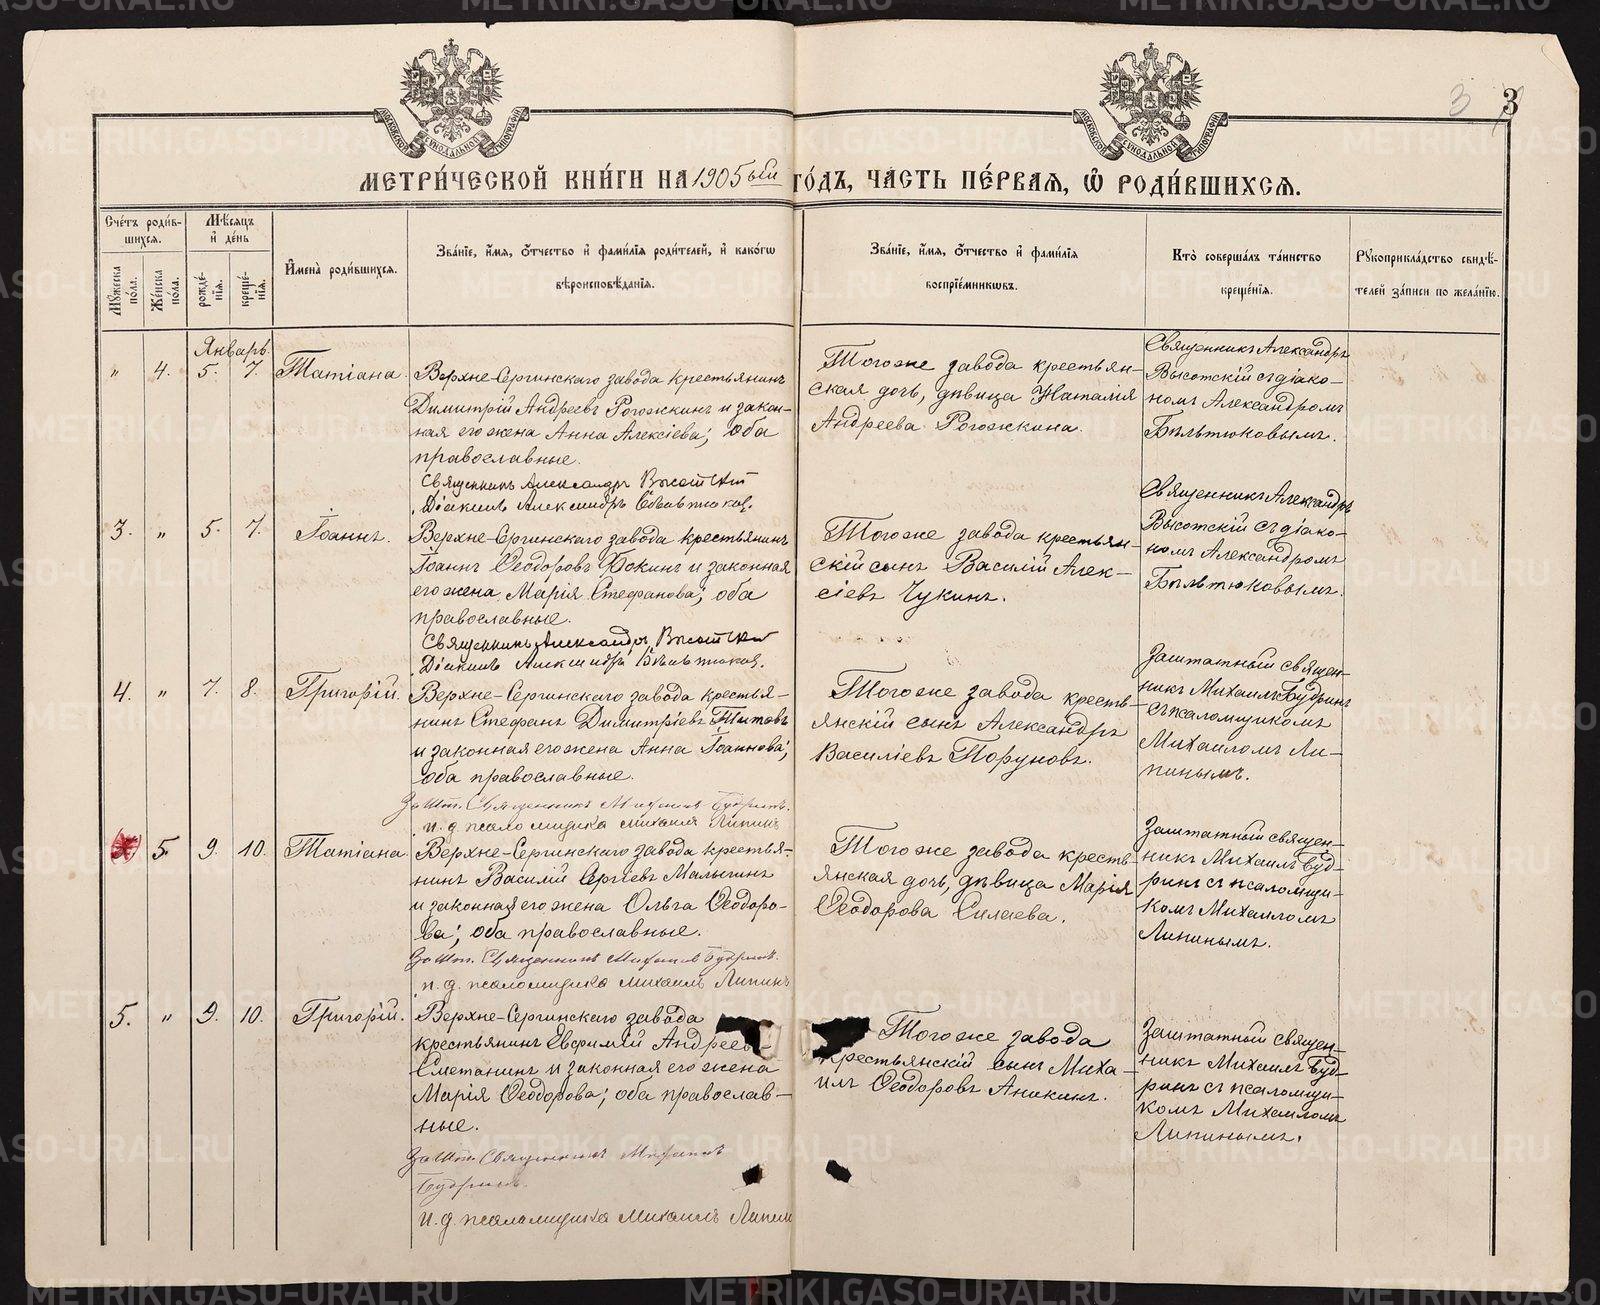 3 3
МОСКОВСКОЙ СѴНОДАЛЬНОЙ ТИПОГРАФІИ
МОСКОВСКОЙ СѴНОДАЛЬНОЙ ТИПОГРАФІИ
МЕТРИ́ЧЕСКОЙ КНИ́ГИ НА 1905ый ГО́ДЪ, ЧА́СТЬ ПЕ́РВАЯ, Ѽ РОДИ́ВШИХСЯ.
Счетъ родив-
шихся.
Мужеска пола.
Женска пола.
Мѣсяцъ
и день
рожде-
нія.
креще-
нія.
Имена родившихся.
Званіе, имя, отчество и фамилія родителей, и какогѡ
вѣроисповѣданія.
Званіе, имя, отчество и фамилія
воспріемникѡвъ.
Кто совершалъ таинство
крещенія.
Рукоприкладство свидѣ-
телей записи по желанію.
Январь.
" 4. 5. 7. Татіана.
Верхне-Сергинскаго завода крестьянинъ
Димитрій Андреевъ Рогожкинъ и закон-
ная его жена Анна Алексіева; оба
православные.
Священникъ Александръ Высотскій
Діаконъ Александръ Бѣльтюковъ.
Тогоже завода крестьян-
ская дочь, дѣвица Наталія
Андреева Рогожкина.
Священникъ Александръ
Высотскій съ діако-
номъ Александромъ
Бѣльтюковымъ.
3. " 5. 7. Іоаннъ.
Верхне-Сергинскаго завода крестьянинъ
Іоаннъ Ѳеодоровъ Бокинъ и законная
его жена Марія Стефанова; оба
православные.
Священникъ Александръ Высотскій
Діаконъ Александръ Бѣльтюковъ.
Тогоже завода крестьян-
скій сынъ Василій Алек-
сіевъ Чукинъ.
Священникъ Александръ
Высотскій съ діако-
номъ Александромъ
Бѣльтюковымъ.
4. " 7. 8. Григорій.
Верхне-Сергинскаго завода крестья-
нинъ Стефанъ Димитріевъ Титовъ
и законная его жена Анна Іоаннова;
оба православные.
Зашт. Священникъ Михаилъ Будринъ.
и. д. псаломщика Михаилъ Липинъ
Тогоже завода кресть-
янскій сынъ Александръ
Василіевъ Поруновъ.
Заштатный священ-
никъ Михаилъ Будринъ
съ псаломщикомъ
Михаиломъ Ли-
пинымъ.
5. 9. 10. Татіана
Верхне-Сергинскаго завода крестья-
нинъ Василій Сергіевъ Малыгинъ
и законная его жена Ольга Ѳеодоро-
ва; оба православные.
Зашт. Священникъ Михаилъ Будринъ.
и. д. псаломщика Михаилъ Липинъ
Тогоже завода кресть-
янская дочь, дѣвица Марія
Ѳеодорова Силаева.
Заштатный священ-
никъ Михаилъ Буд-
ринъ съ псаломщи-
комъ Михаиломъ
Липинымъ.
5. " 9. 10. Григорій.
Верхне-Сергинскаго завода
крестьянинъ Евфимій Андреевъ
Сметанинъ и законная его жена
Марія Ѳеодорова; оба православ-
ные.
Зашт. Священникъ Михаилъ
Будринъ.
И. д. псаломщика Михаилъ Липинъ
Тогоже завода
крестьянскій сынъ Миха-
илъ Ѳеодоровъ Аникинъ.
Заштатный священ-
никъ Михаилъ Буд-
ринъ съ псаломщи-
комъ Михаиломъ
Липинымъ.
METRIKI.GASO-URAL.RU